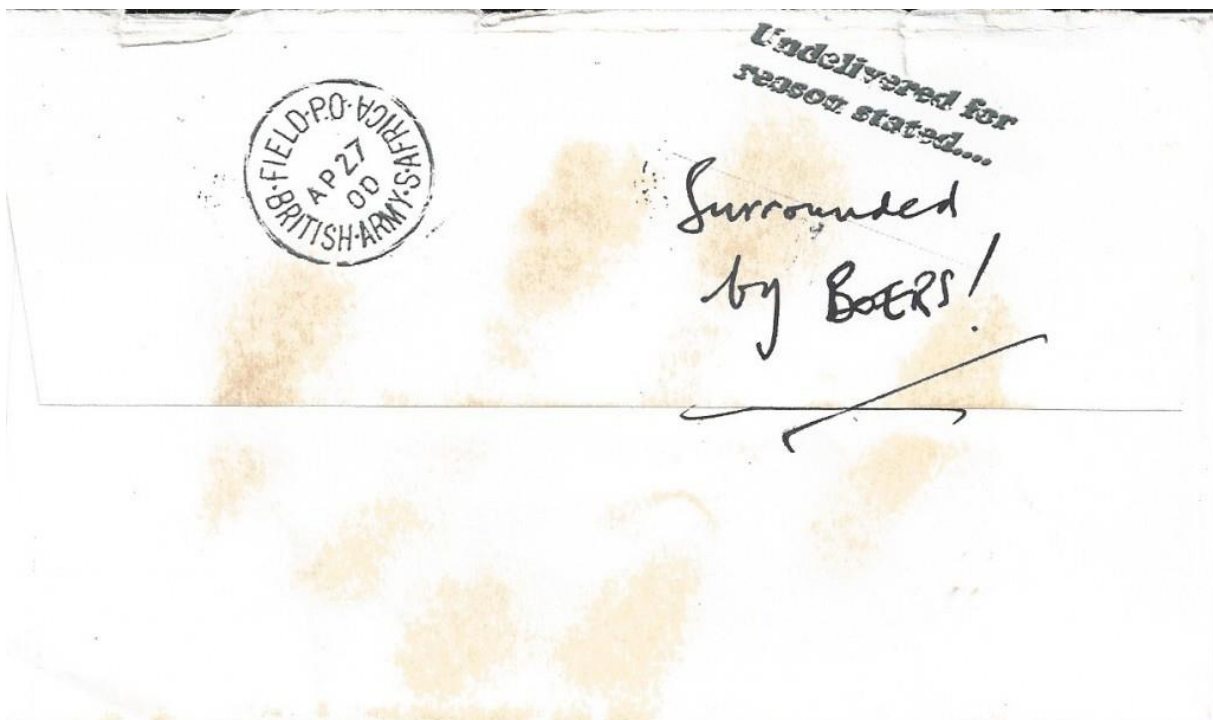 FIELD·P.O·
BRITISH·ARMY·S·AFRICA
AP 27
00
Undelivered for
reason stated....
Surrounded
by BOERS!